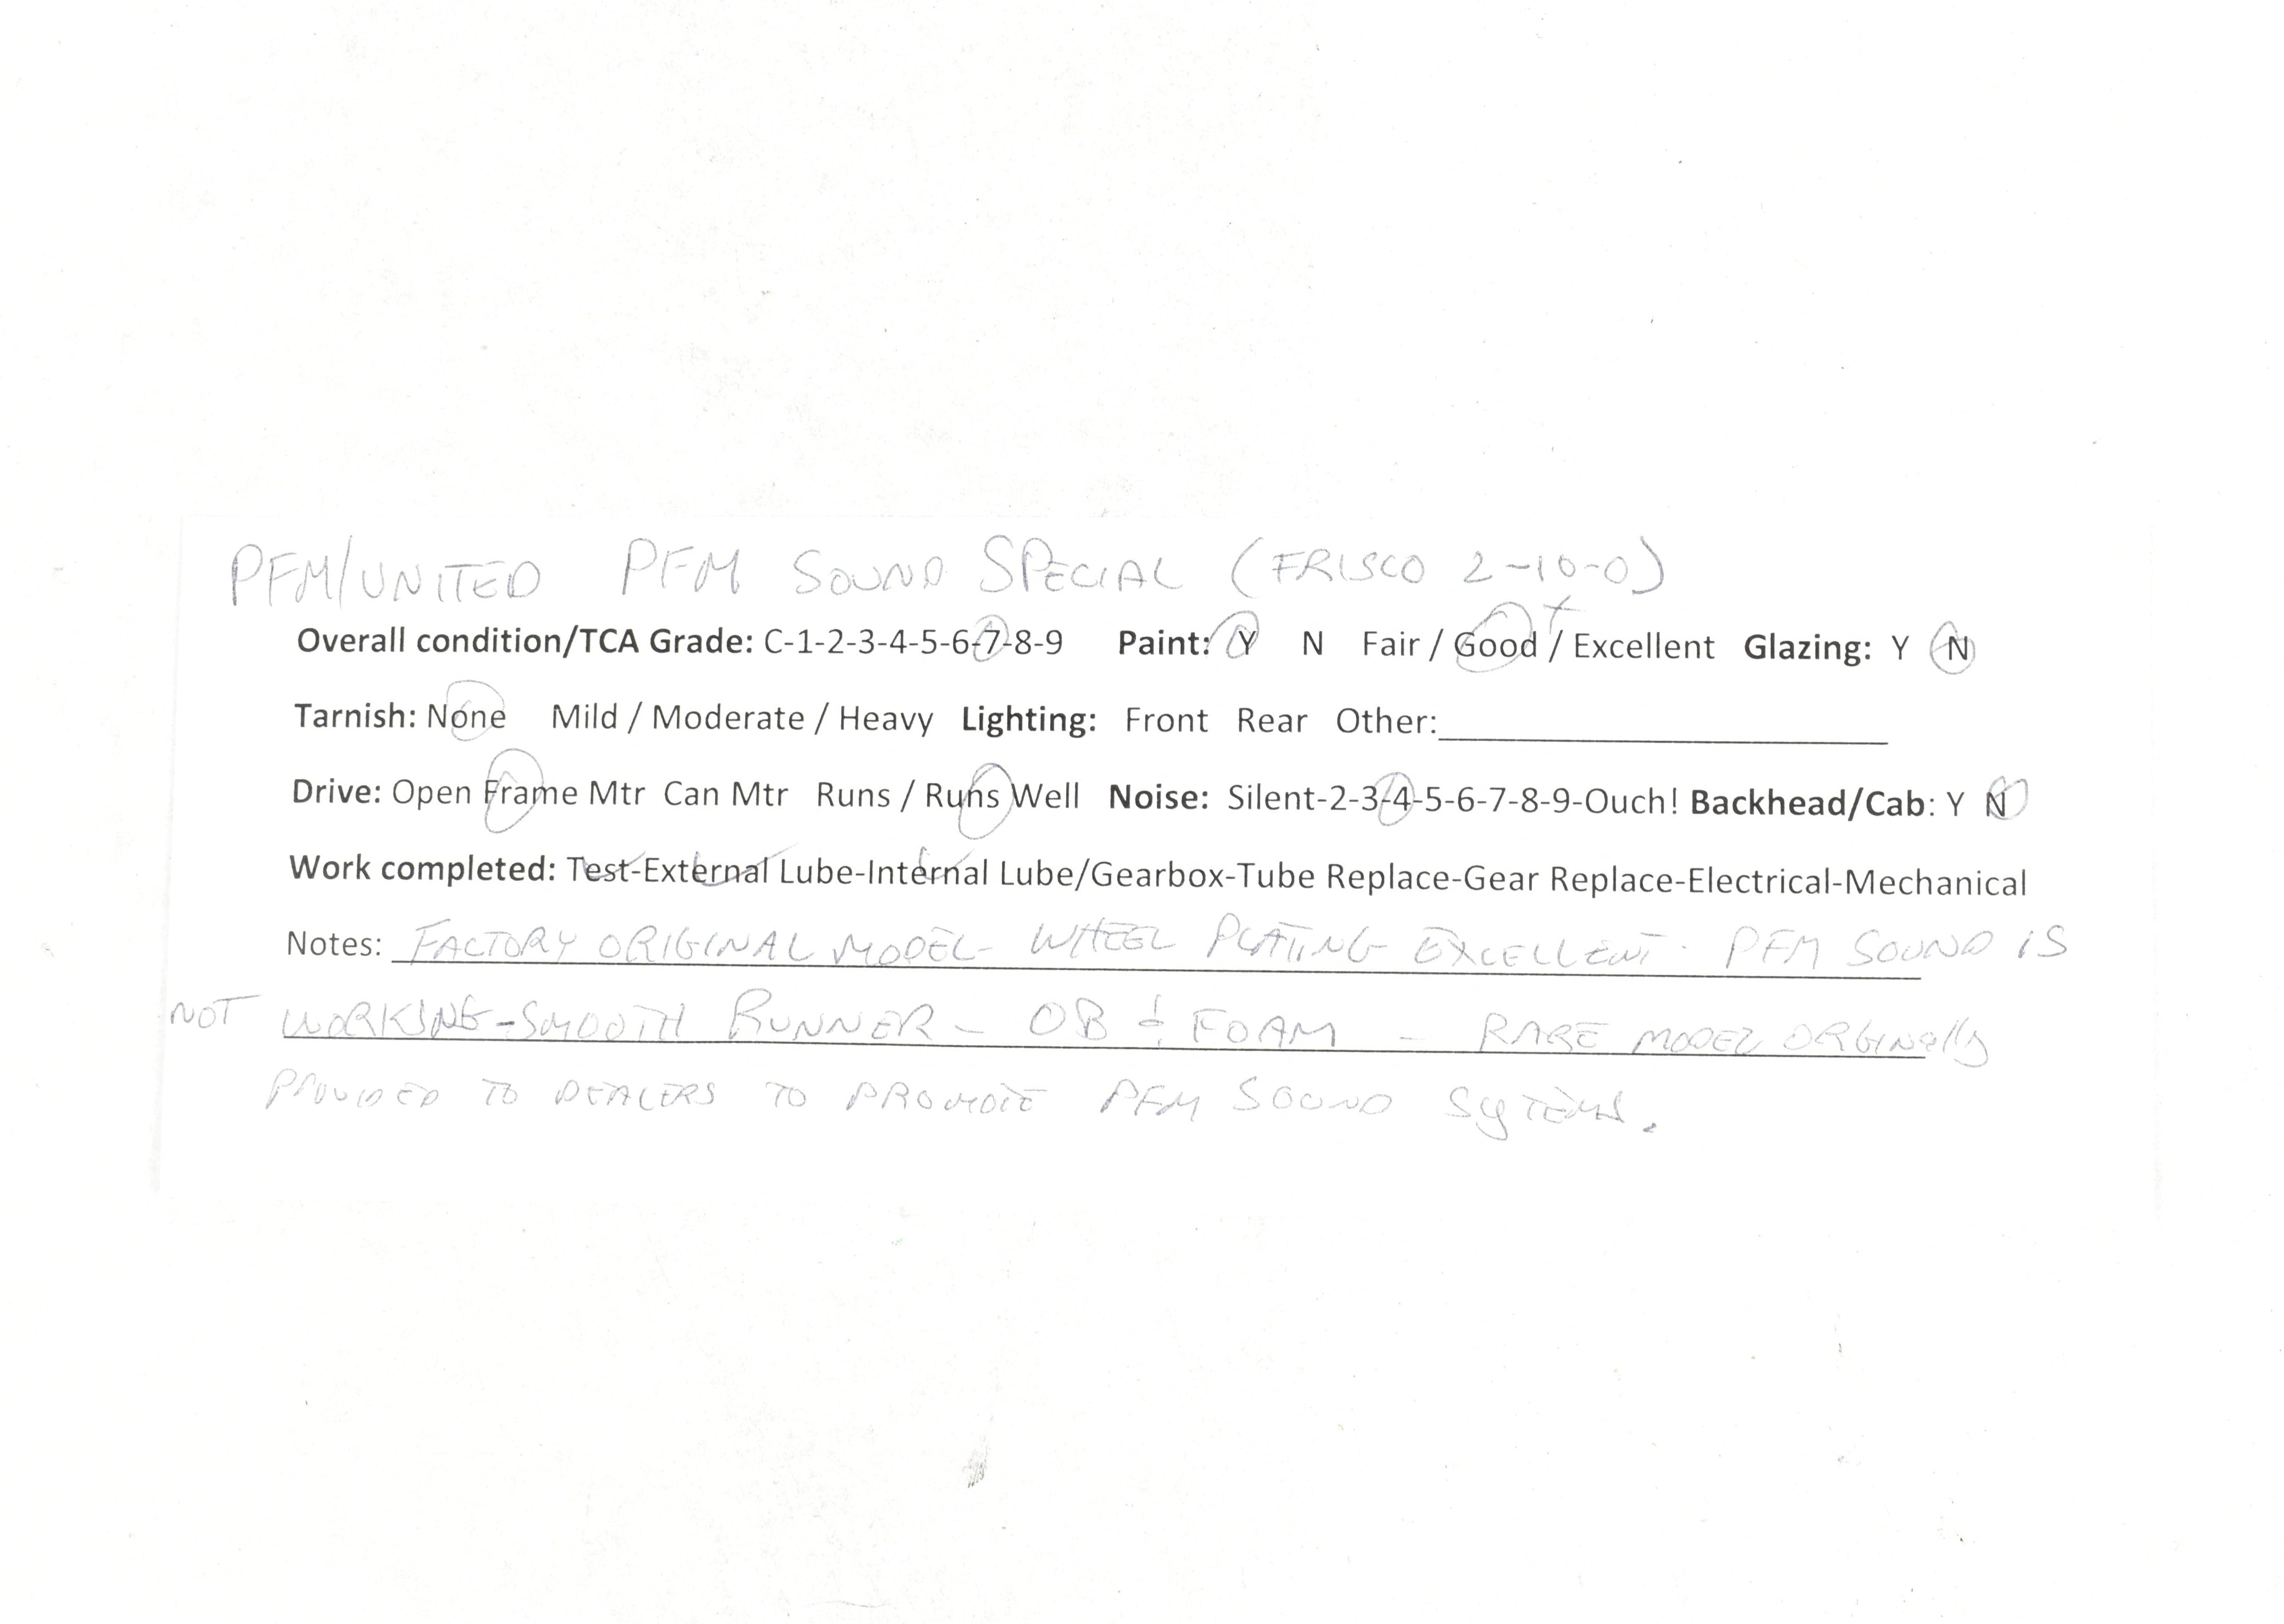 PFM/UNITED PFM SOUND SPECIAL (FRISCO 2-10-0)
Overall condition/TCA Grade: C-1-2-3-4-5-6-7-8-9 Paint: Y N Fair / Good + / Excellent Glazing: Y N
Tarnish: None Mild / Moderate / Heavy Lighting: Front Rear Other:
Drive: Open Frame Mtr Can Mtr Runs / Runs Well Noise: Silent-2-3-4-5-6-7-8-9-Ouch! Backhead/Cab: Y N
Work completed: Test-External Lube-Internal Lube/Gearbox-Tube Replace-Gear Replace-Electrical-Mechanical
Notes: FACTORY ORIGINAL MODEL- WHEEL PLATING EXCELLENT. PFM SOUND IS
NOT WORKING-SMOOTH RUNNER - OB & FOAM - RARE MODEL ORGINALLY
PROVIDED TO DEALERS TO PROMOTE PFM SOUND SYTEMS.